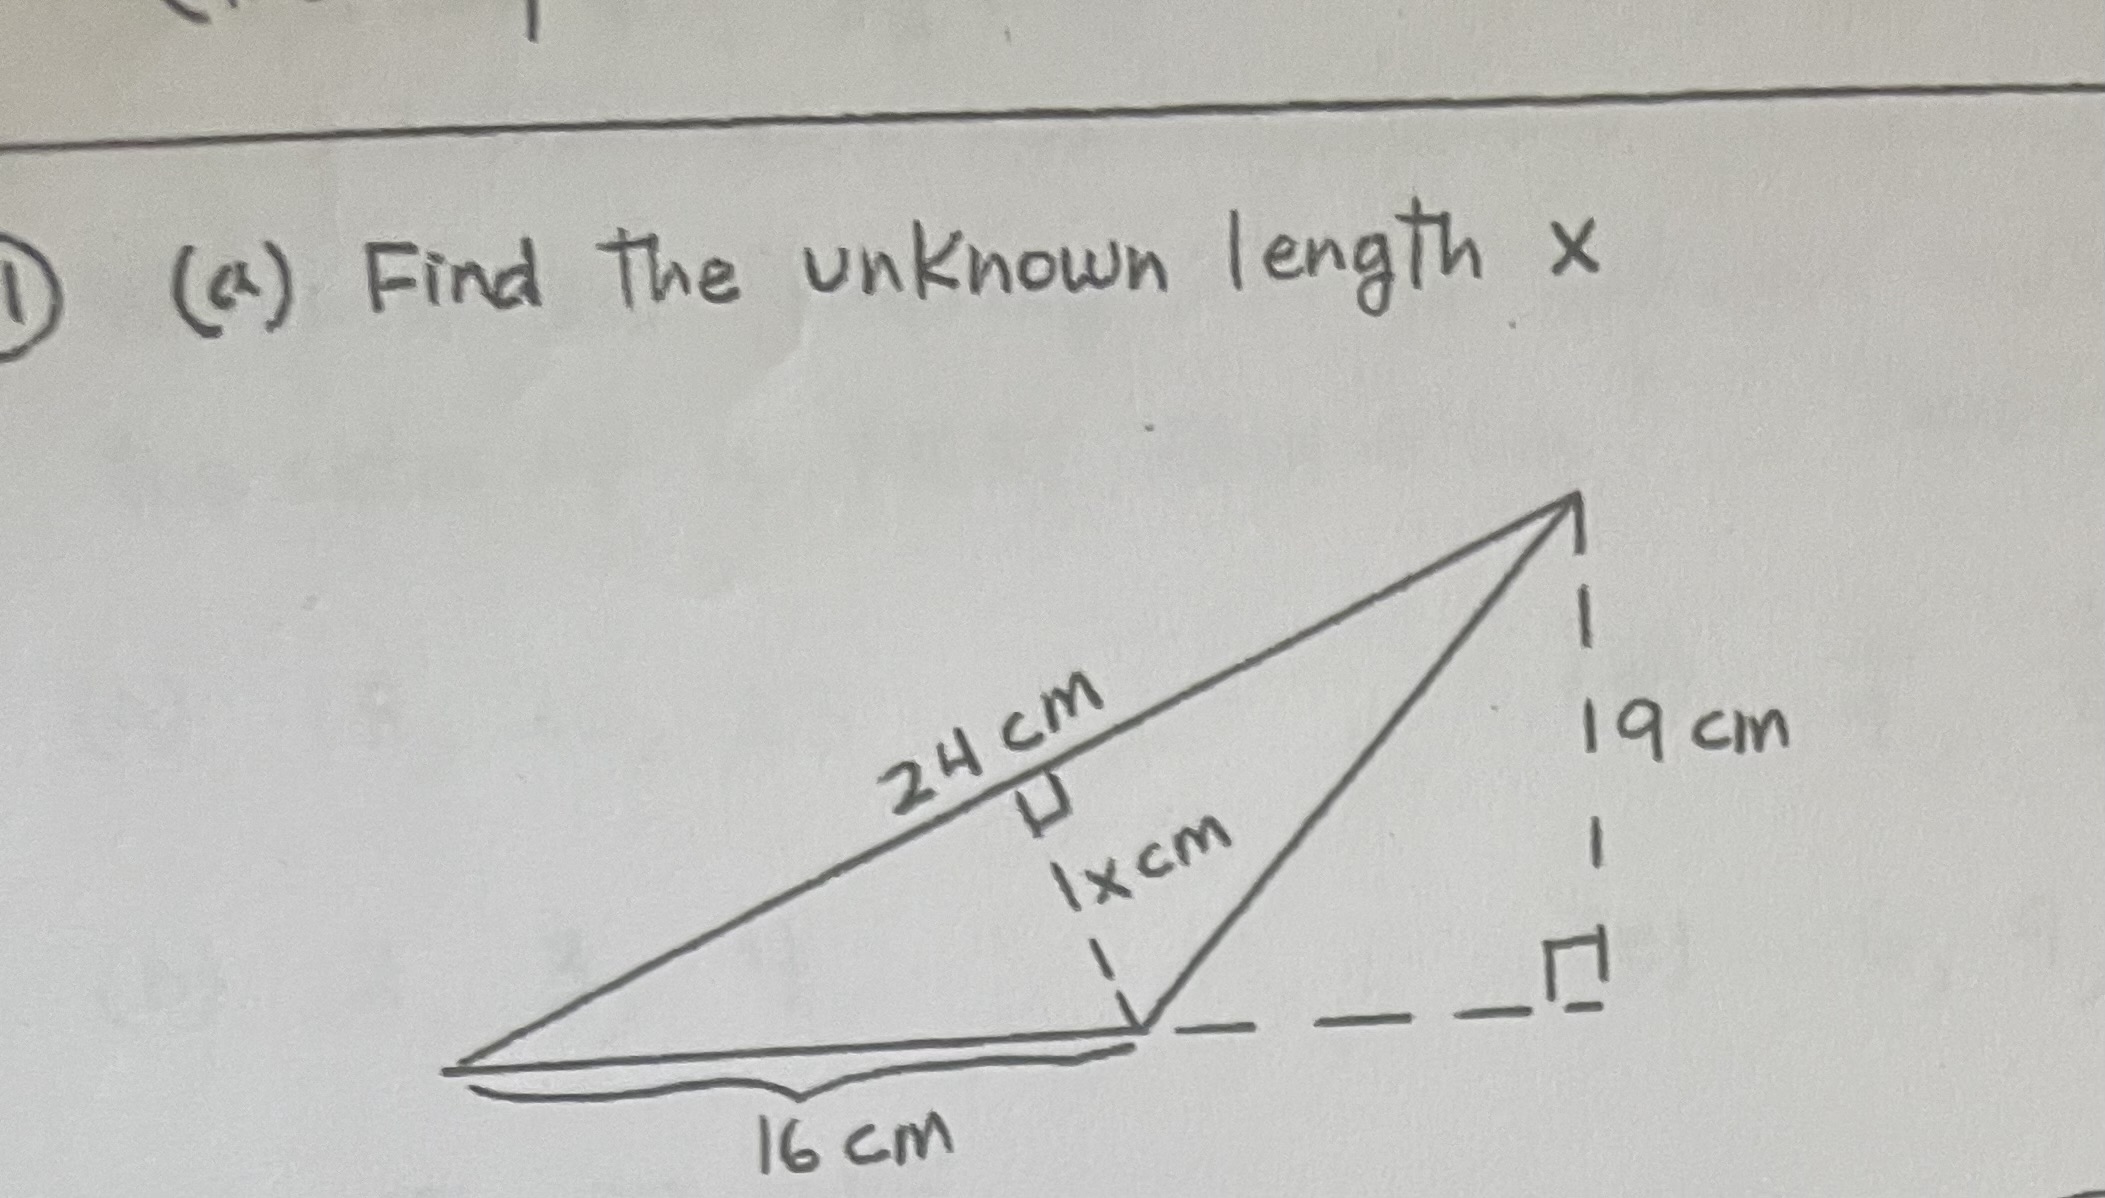 ① (a) Find the unknown length x
24 cm
19 cm
x cm
16 cm